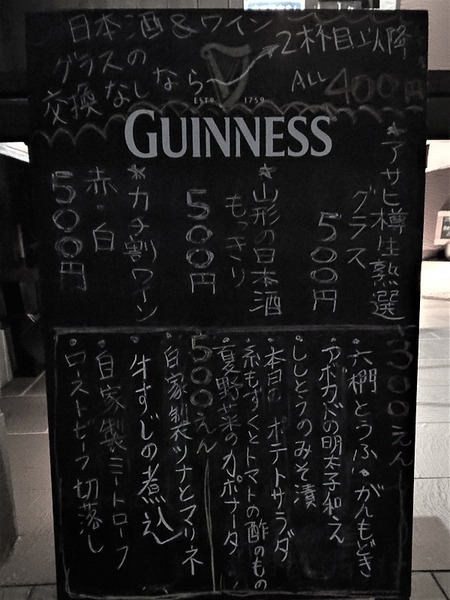 日本酒&ワイン
グラスの
交換なしなら
2杯目以降
ALL 400円
ESTD 1759
GUINNESS
*アサヒ樽生熟選
グラス
500円
*山形の日本酒
もっきり
500円
*カチ割ワイン
赤・白
500円
300えん
・六樹とうふ・がんもどき
・アボカドの明太子和え
・ししとうのみそ漬
・本日のポテトサラダ
・糸もずくとトマトの酢のもの
・夏野菜のカポナータ
500えん
・自家製ツナとマリネ
・牛すじの煮込
・自家製ミートローフ
・ローストビーフ切落し